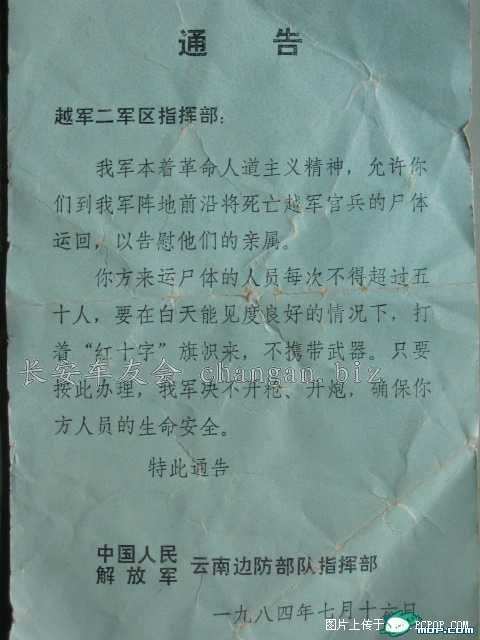 通告
越军二军区指挥部：
我军本着革命人道主义精神，允许你
们到我军阵地前沿将死亡越军官兵的尸体
运回，以告慰他们的亲属。
你方来运尸体的人员每次不得超过五
十人，要在白天能见度良好的情况下，打
着“红十字”旗帜来，不携带武器。只要
长安车友会 changan.biz
按此办理，我军决不开枪、开炮，确保你
方人员的生命安全。
特此通告
中国人民
解放军 云南边防部队指挥部
一九八四年七月十六日
图片上传于
PCPOP.COM
mop.com